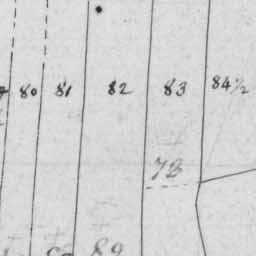 80 81 82 83 84½
73
89